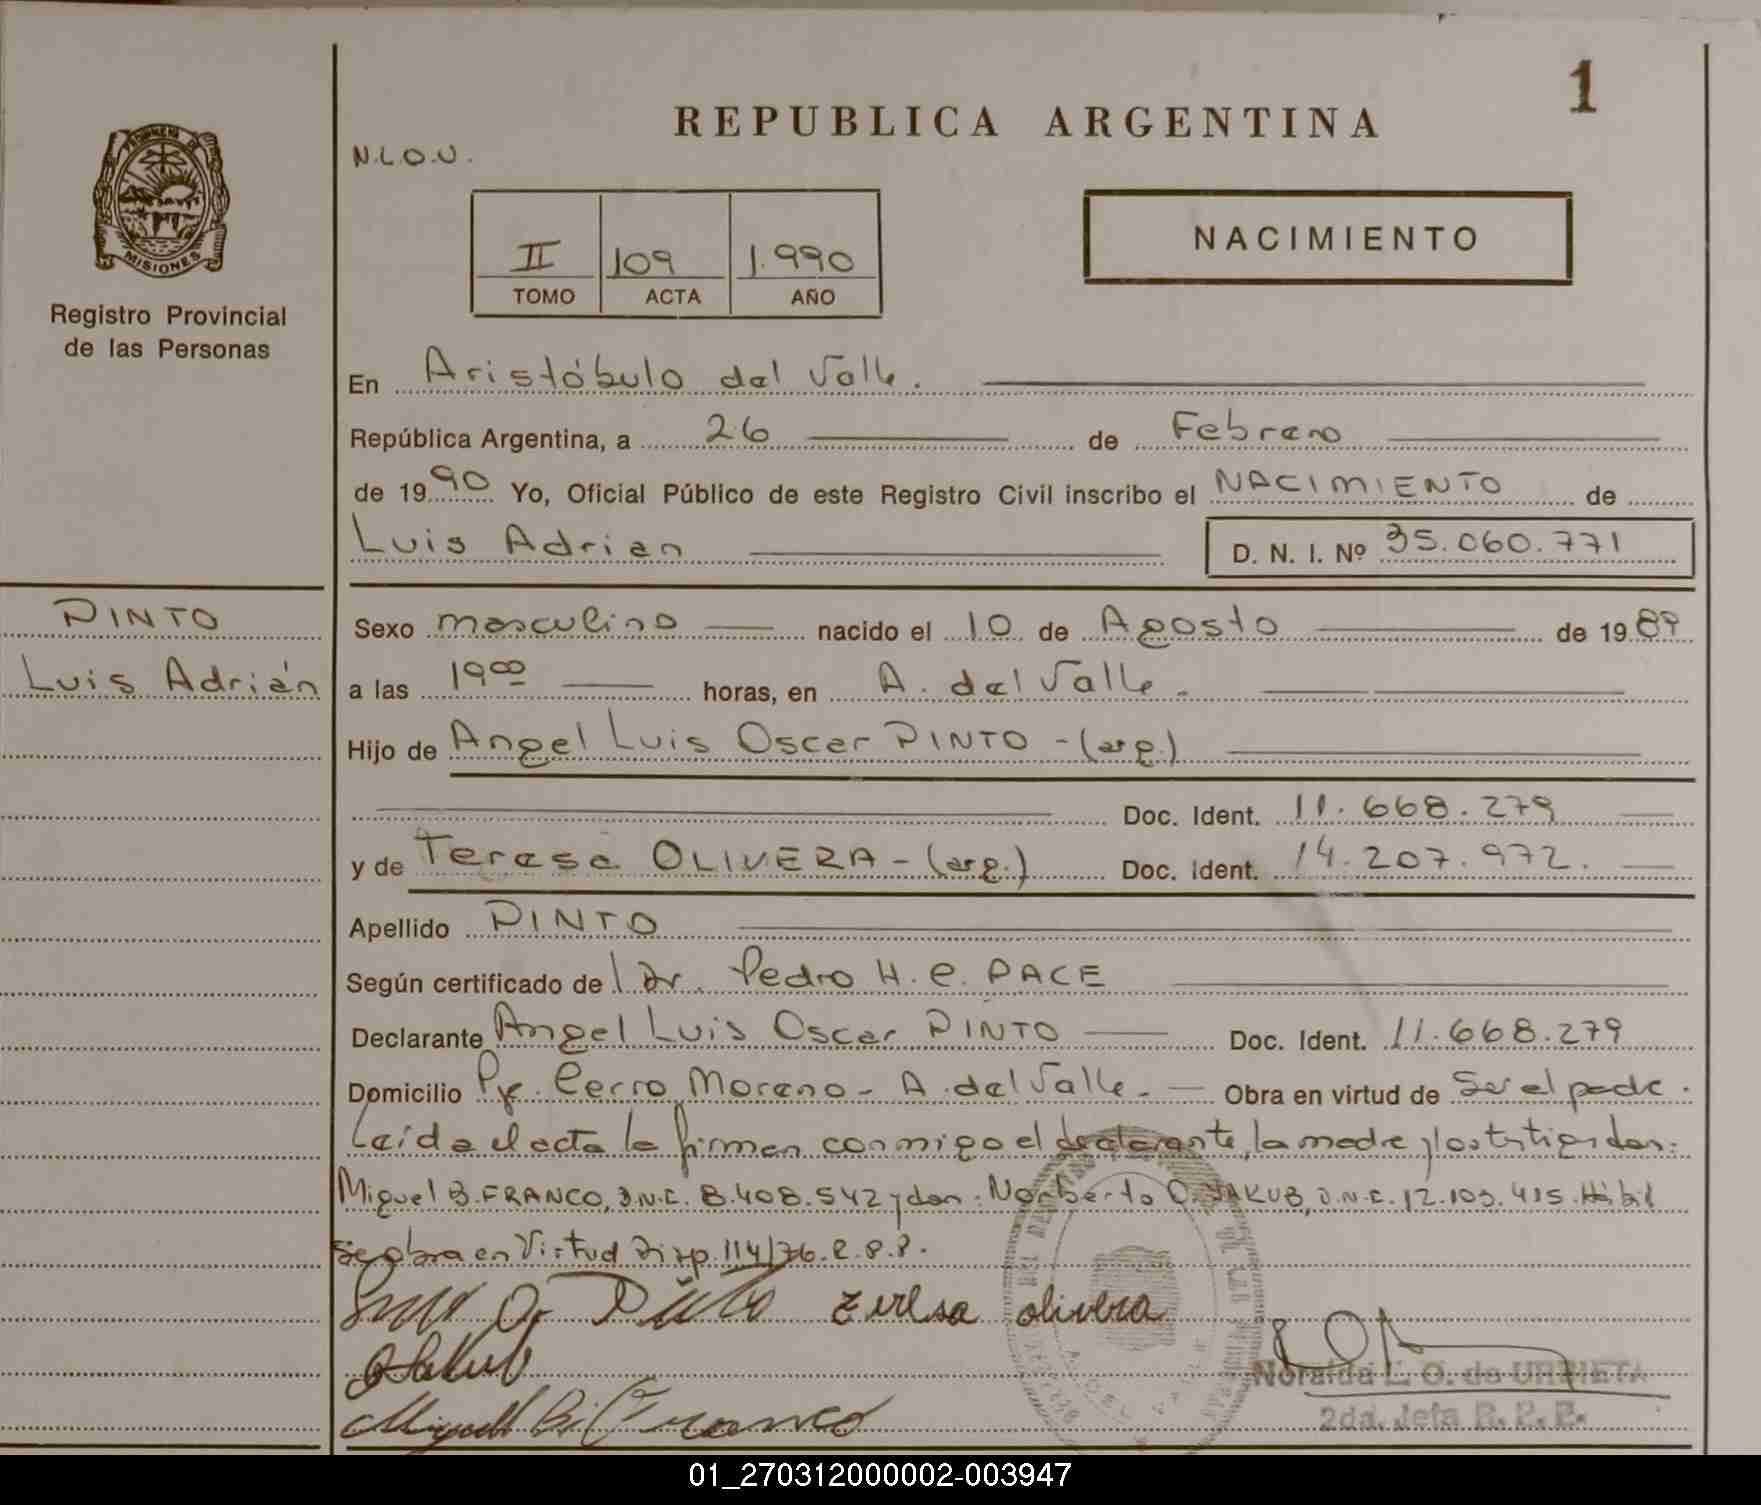 1
REPUBLICA ARGENTINA
N.L.O.U.
PROVINCIA DE
MISIONES
Registro Provincial
de las Personas
II 109 1.990
TOMO ACTA AÑO
NACIMIENTO
En Aristóbulo del Valle.
República Argentina, a 26 de Febrero
de 1990 Yo, Oficial Público de este Registro Civil inscribo el NACIMIENTO de
Luis Adrian D. N. I. Nº 35.060.771
PINTO
Luis Adrián
Sexo masculino nacido el 10 de Agosto de 1989
a las 19 00 horas, en A. del Valle.
Hijo de Angel Luis Oscar PINTO - (arg.)
Doc. Ident. 11.668.279
y de Teresa OLIVERA - (arg.) Doc. Ident. 14.207.972.
Apellido PINTO
Según certificado de l Dr. Pedro H. C. PACE
Declarante Angel Luis Oscar PINTO Doc. Ident. 11.668.279
Domicilio Pje. Cerro Moreno - A. del Valle. Obra en virtud de Ser el padre.
Leída el acta la firman conmigo el declarante, la madre y los testigos don:
Miguel B. FRANCO, D.N.I. 8.408.542 y don: Norberto O. JAKUB, D.N.I. 12.103.415. Hábil
Se obra en Virtud Disp. 114/76. R.P.P.
Pinto Teresa Olivera
Jakub
Miguel B. Franco
Noraida L. O. de URRIETA
2da. Jefa R. P. P.
01_270312000002-003947